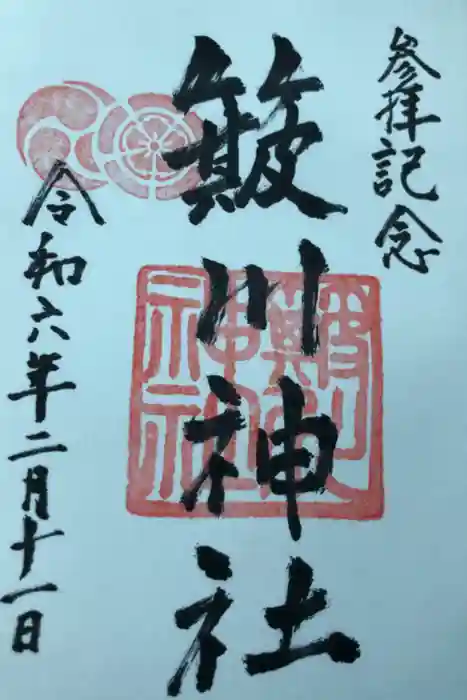 参拝記念
簸川神社
令和六年二月十一日
簸川神社